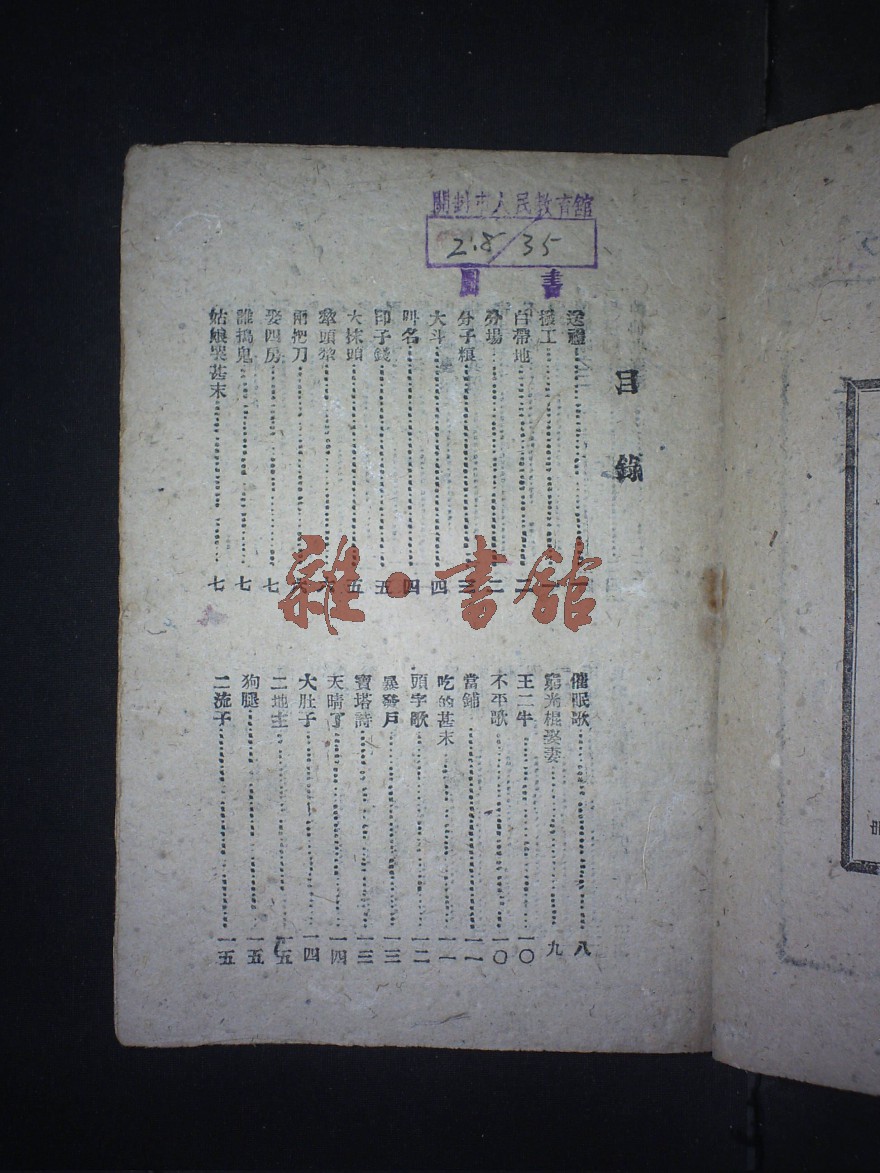 開封市人民教育館
2.8/35
圖書
目錄
送禮 一
撥工 一
白帶地 二
分場 二
分子糧 三
大斗 四
叫名 四
印子錢 五
大抹頭 五
犂頭 六
兩把刀 六
娶四房 七
誰搗鬼 七
姑娘哭甚末 七
催眠歌 八
窮光棍娶妻 九
王二牛 一〇
不平歌 一〇
當鋪 一一
吃的甚末 一一
頭字歌 一二
暴發戶 一三
寶塔詩 一三
天晴了 一四
大肚子 一四
二地主 一五
狗腿 一五
二流子 一五
雜·書館